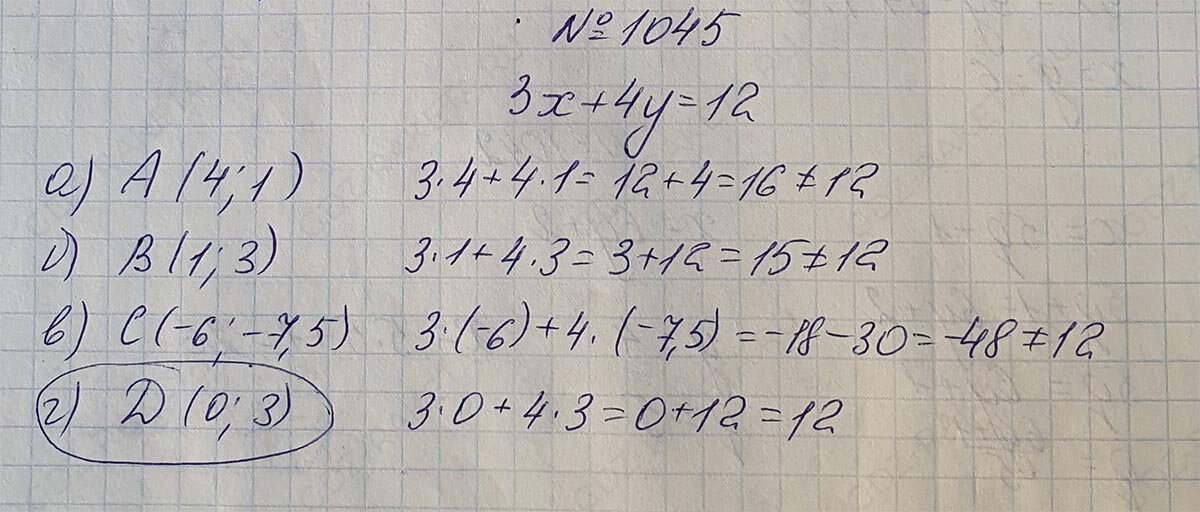 № 1045
3x+4y=12
а) A (4; 1) 3·4+4·1= 12+4=16≠12
б) B (1; 3) 3·1+4·3=3+12=15≠12
в) C (-6; -7,5) 3·(-6)+4·(-7,5)=-18-30=-48≠12
г) D (0; 3) 3·0+4·3=0+12=12